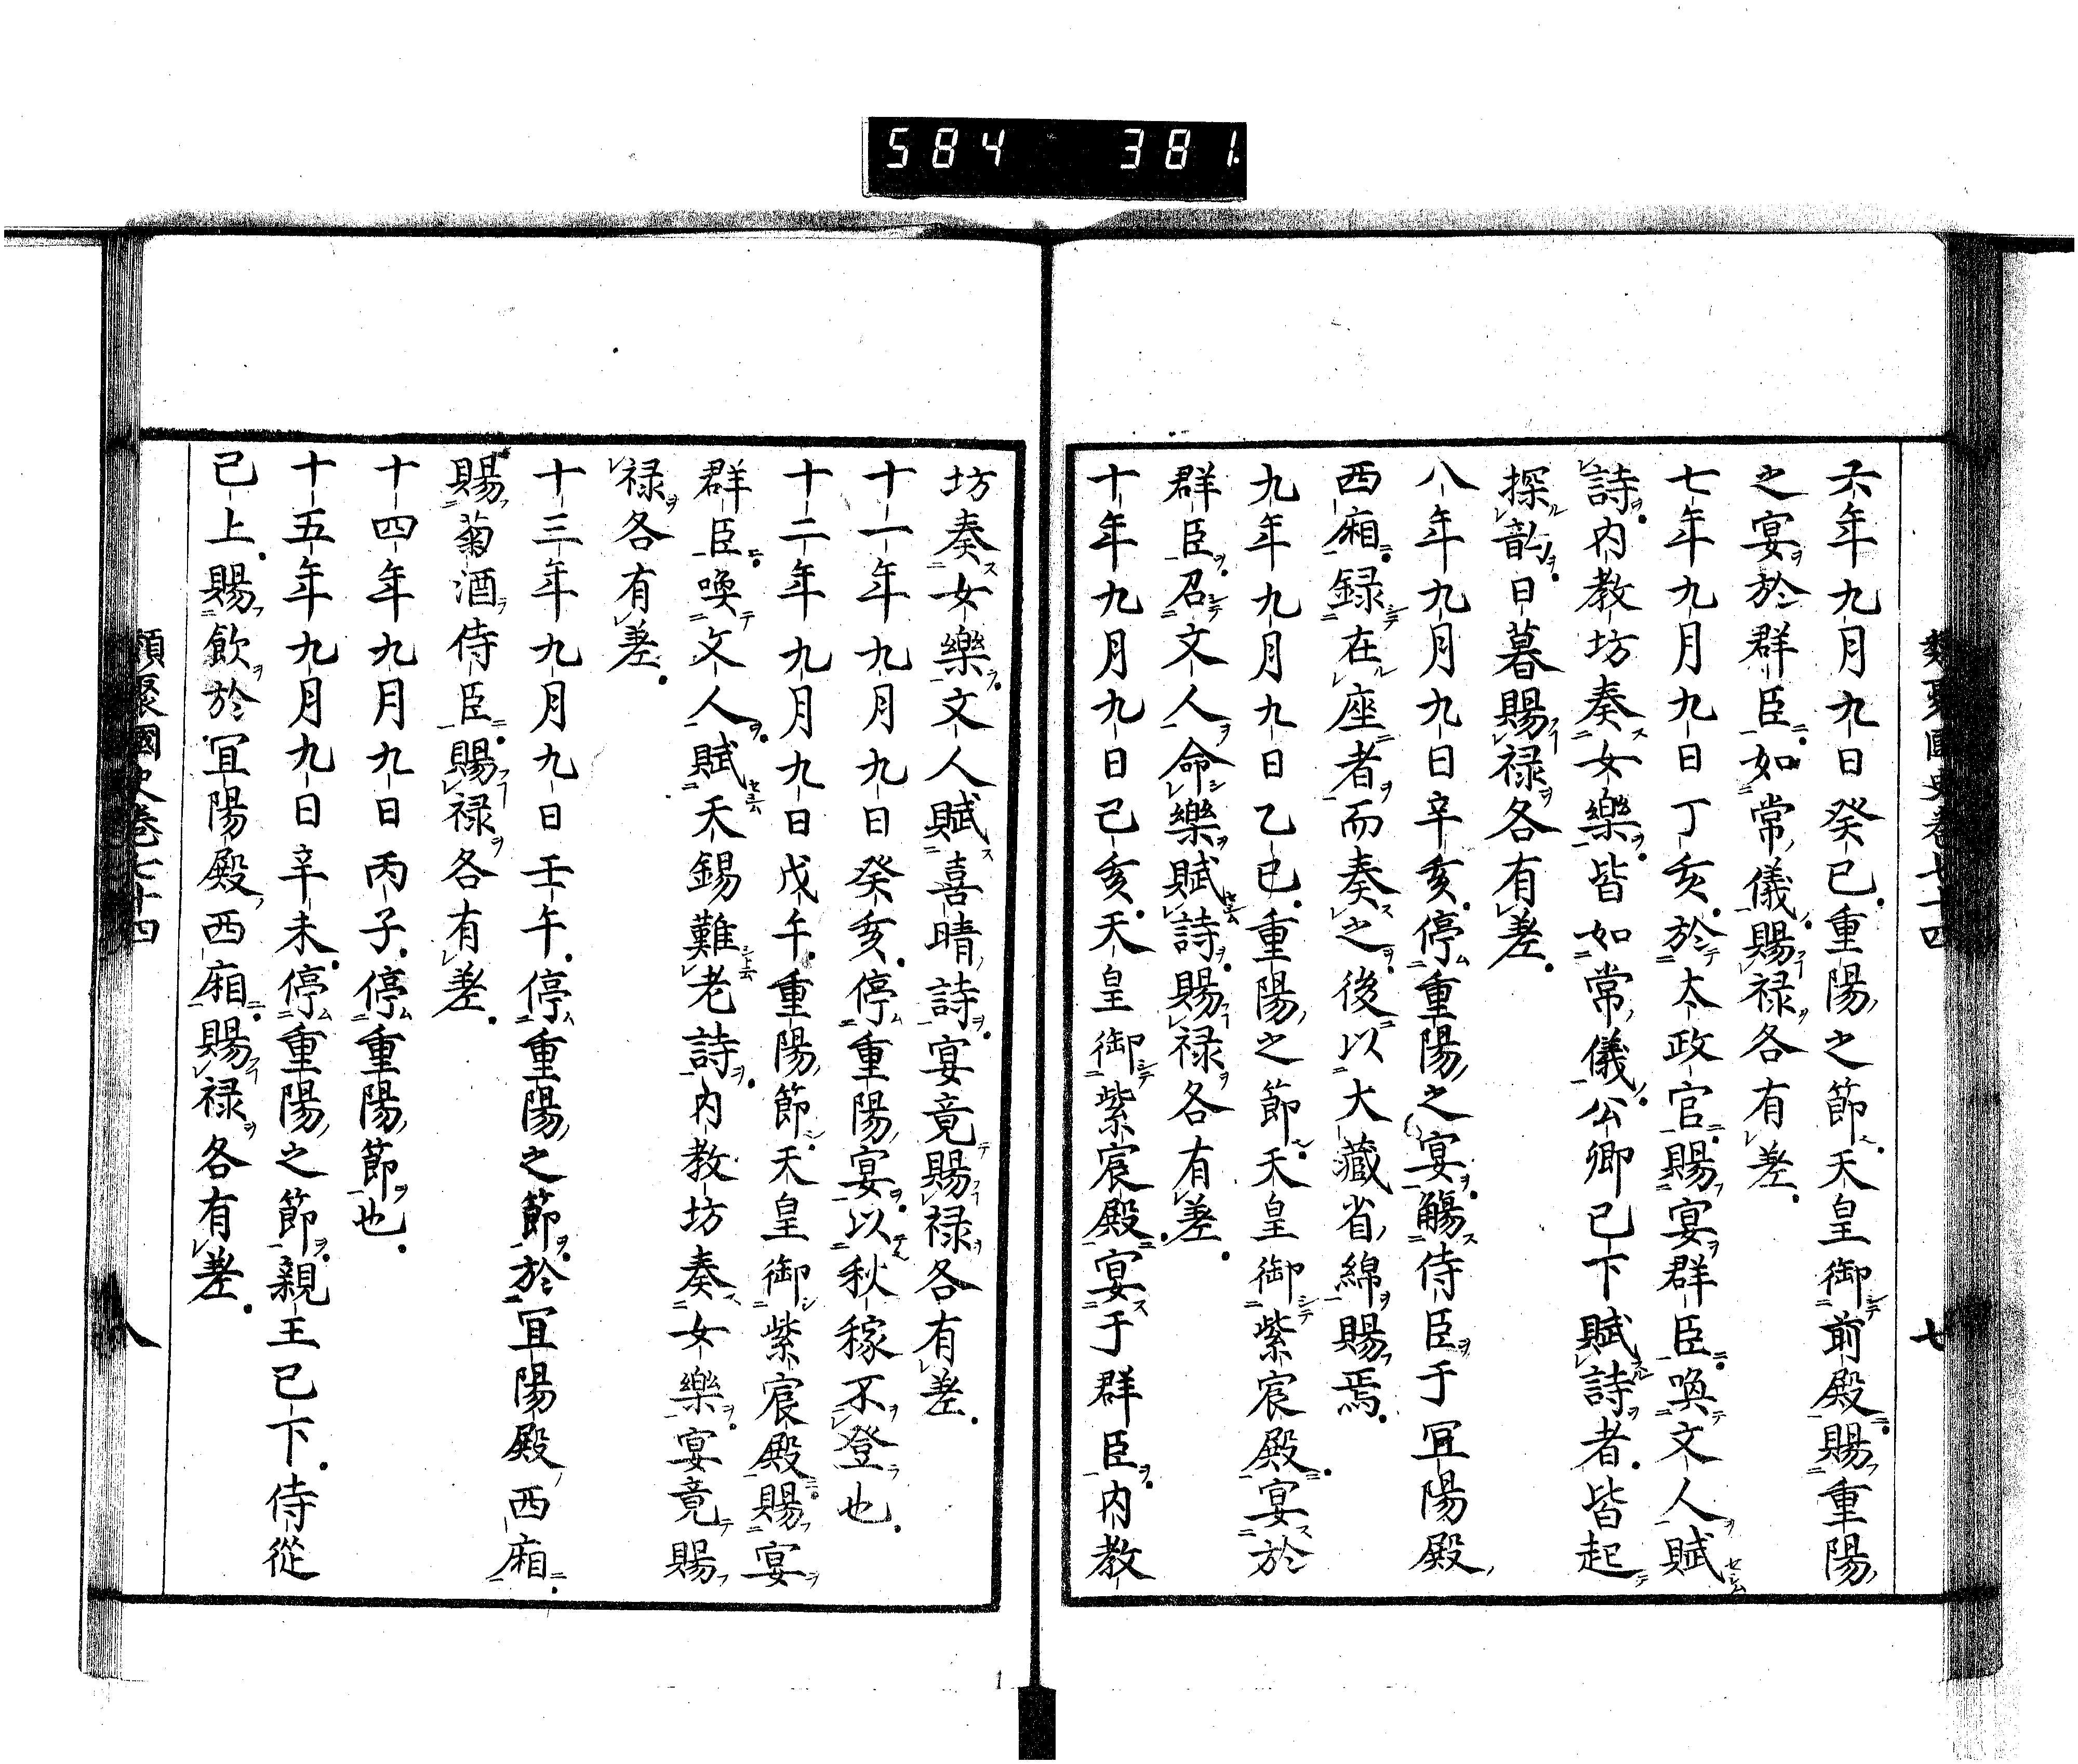 584 381
類聚國史卷七十四 七
六年九月九日癸巳重陽之節天皇御前殿賜重陽
之宴於群臣如常儀賜禄各有差
七年九月九日丁亥於太政官賜宴群臣喚文人賦
詩内教坊奏女樂皆如常儀公卿已下賦詩者皆起
探韵日暮賜禄各有差
八年九月九日辛亥停重陽之宴觴侍臣于冝陽殿
西廂録在座者而奏之後以大藏省綿賜焉
九年九月九日乙巳重陽之節天皇御紫宸殿宴於
群臣召文人命樂賦詩賜禄各有差
十年九月九日己亥天皇御紫宸殿宴于群臣内教
坊奏女樂文人賦喜晴詩宴竟賜禄各有差
十一年九月九日癸亥停重陽宴以秋稼不登也
十二年九月九日戊午重陽節天皇御紫宸殿賜宴
群臣喚文人賦天錫難老詩内教坊奏女樂宴竟賜
禄各有差
十三年九月九日壬午停重陽之節於冝陽殿西廂
賜菊酒侍臣賜禄各有差
十四年九月九日丙子停重陽節也
十五年九月九日辛未停重陽之節親王已下侍從
已上賜飲於冝陽殿西廂賜禄各有差
類聚國史卷七十四 八